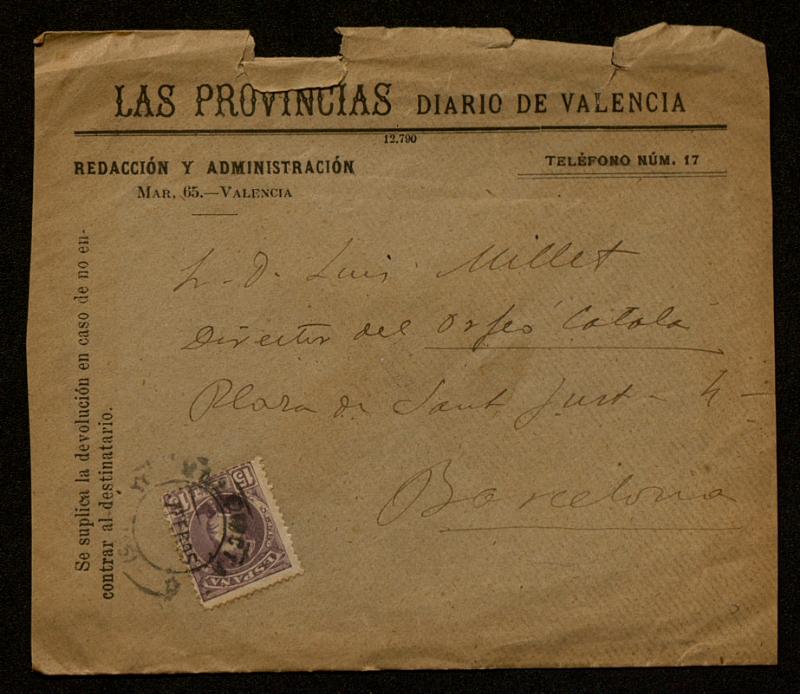 LAS PROVINCIAS DIARIO DE VALENCIA
12.790
REDACCIÓN Y ADMINISTRACIÓN
MAR, 65.—VALENCIA
TELÉFONO NÚM. 17
Se suplica la devolución en caso de no en-
contrar al destinatario.
D. Luis Millet
Director del Orfeó Catalá
Plaza de Sant Just - 4 -
Barcelona
15 15
ESPAÑA